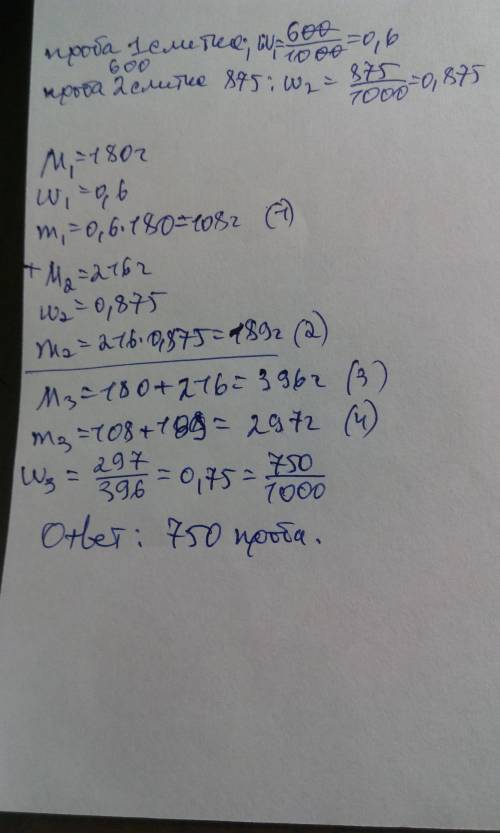 проба 1 слитка; w₁ = 600/1000 = 0,6
600
проба 2 слитка 875: w₂ = 875/1000 = 0,875
M₁=180г
w₁=0,6
m₁=0,6·180=108г (1)
+ M₂=216г
w₂=0,875
m₂=216·0,875=189г (2)
M₃=180+216=396г (3)
m₃=108+189=297г (4)
w₃ = 297/396 = 0,75 = 750/1000
Ответ: 750 проба.